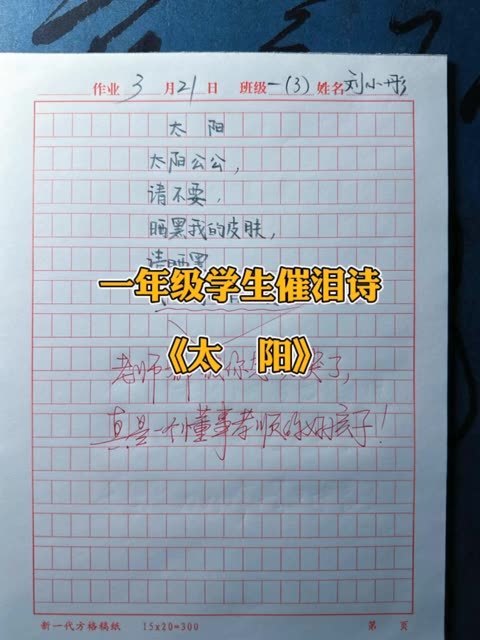 作业 3 月 21 日 班级 一(3) 姓名 刘小彤
太 阳
太阳公公，
请不要，
晒黑我的皮肤，
请晒黑
一年级学生催泪诗
《太 阳》
老师 你 哭了，
真是一个懂事孝顺的好孩子！
新一代方格稿纸 15x20=300 第 页